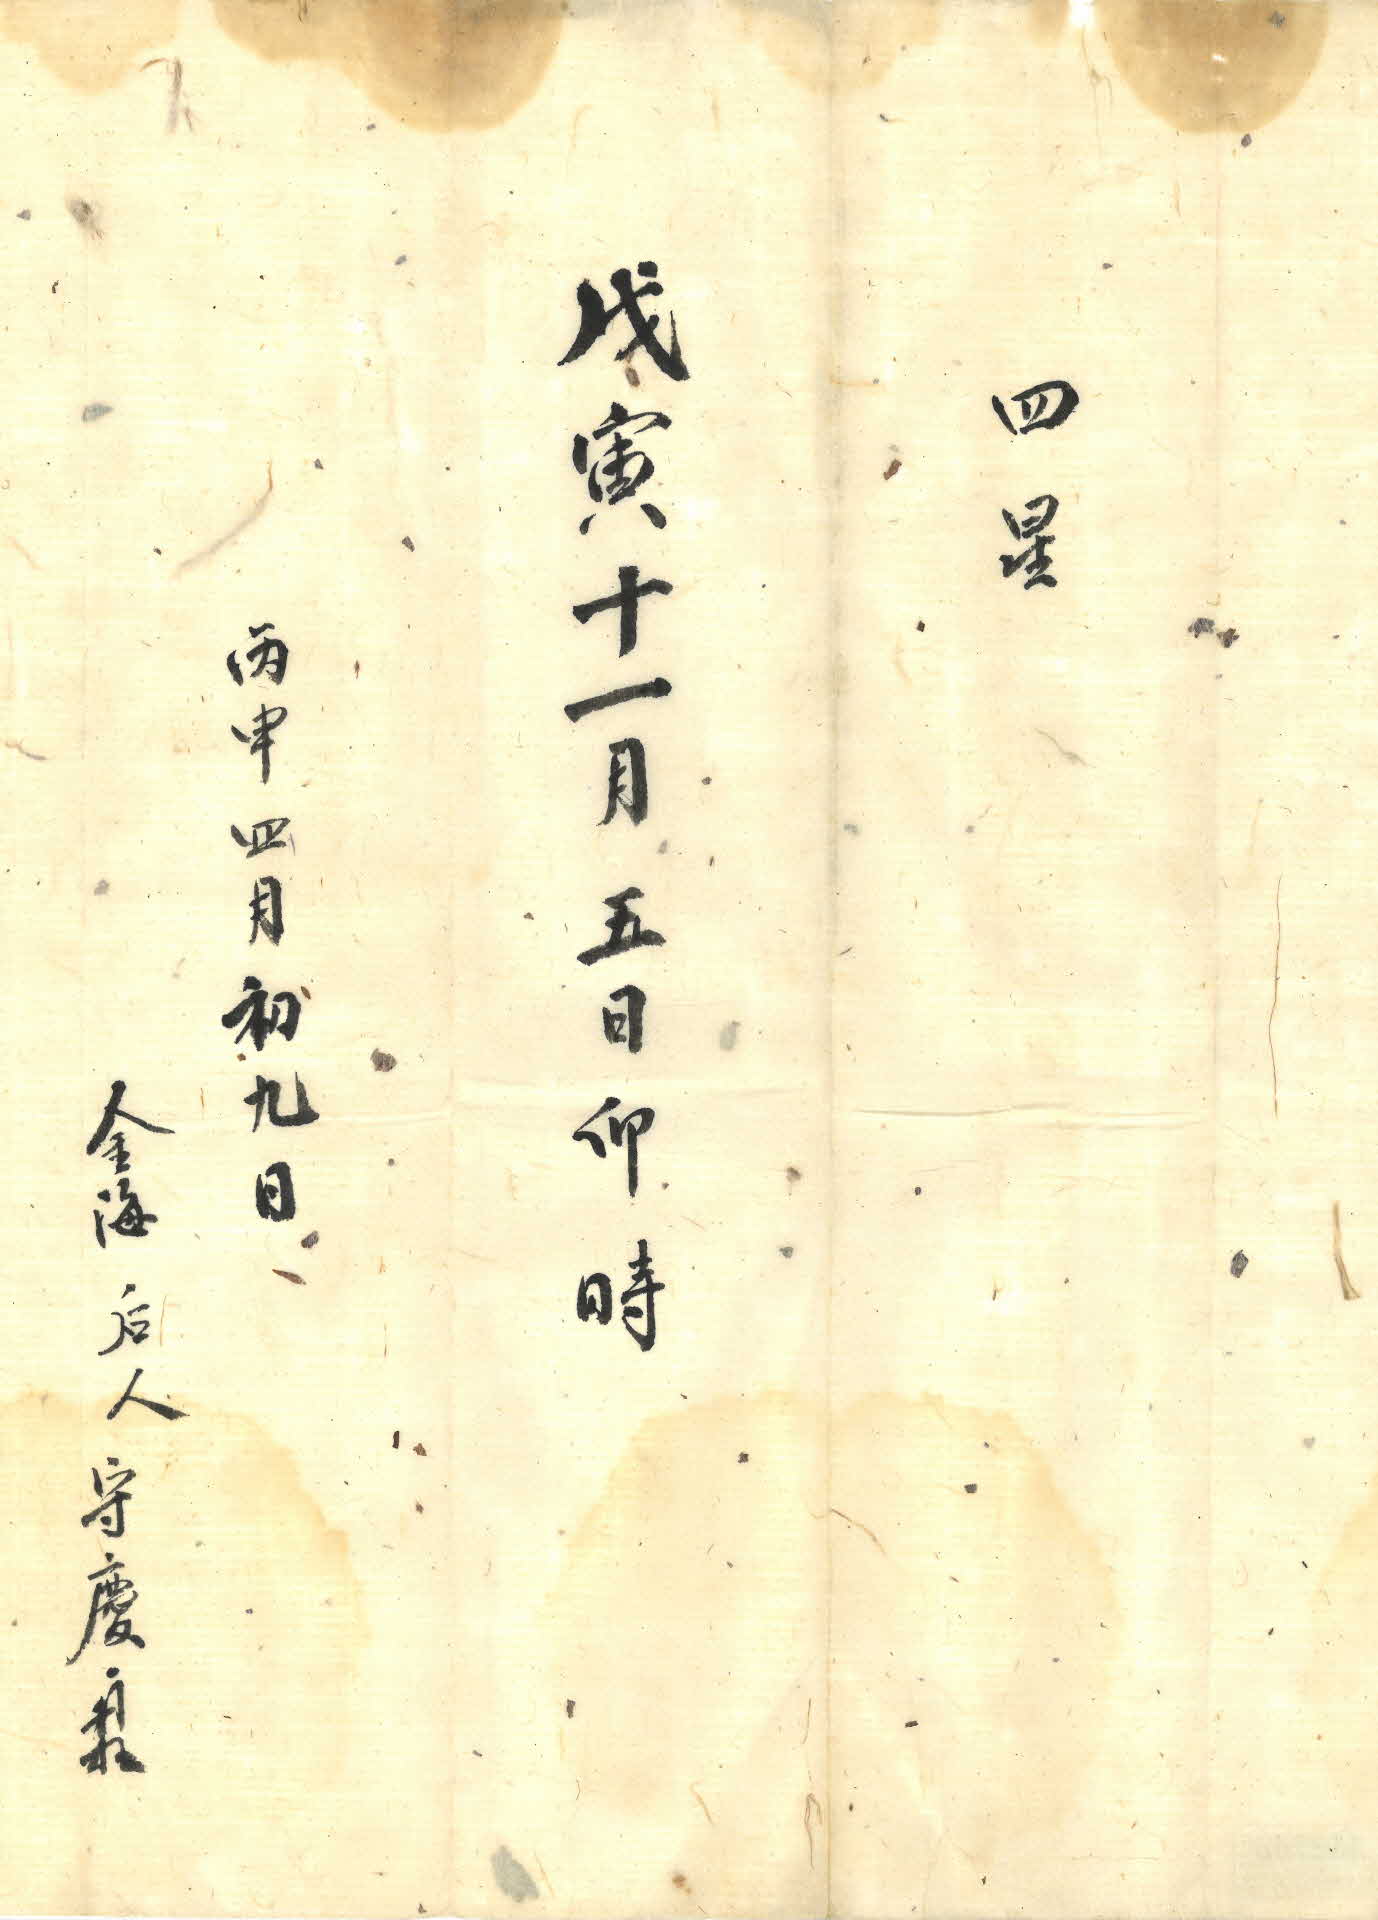 四星
戊寅十一月五日卯時
丙申四月初九日
金海后人守慶